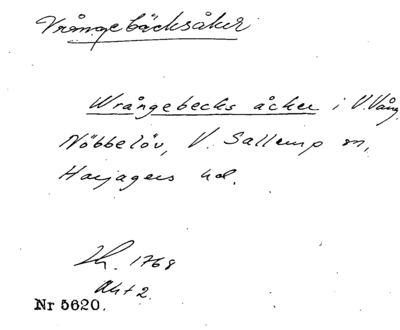 Vrångebäcksåker
Wrångebecks åcker i V. Vång,
Nöbbelöv, V. Sallerup sn,
Harjagers hd.
Lh. 1768
Akt 2.
Nr 5620.